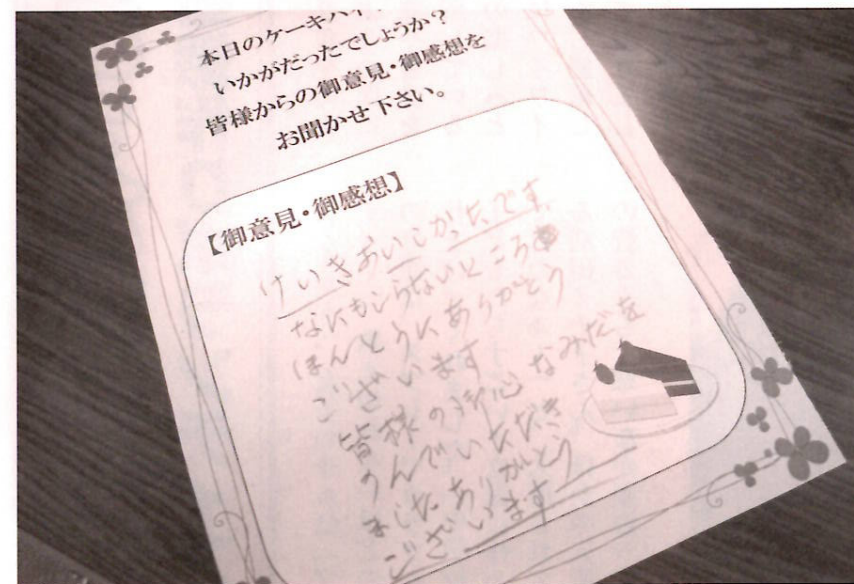 本日のケーキバイ
いかがだったでしょうか？
皆様からの御意見・御感想を
お聞かせ下さい。
【御意見・御感想】
けいきおいしかったです
なにもしらないところ
ほんとうにありがとう
ございます
皆様の 心 なみだを
のんでいただき
ましたありがとう
ございます